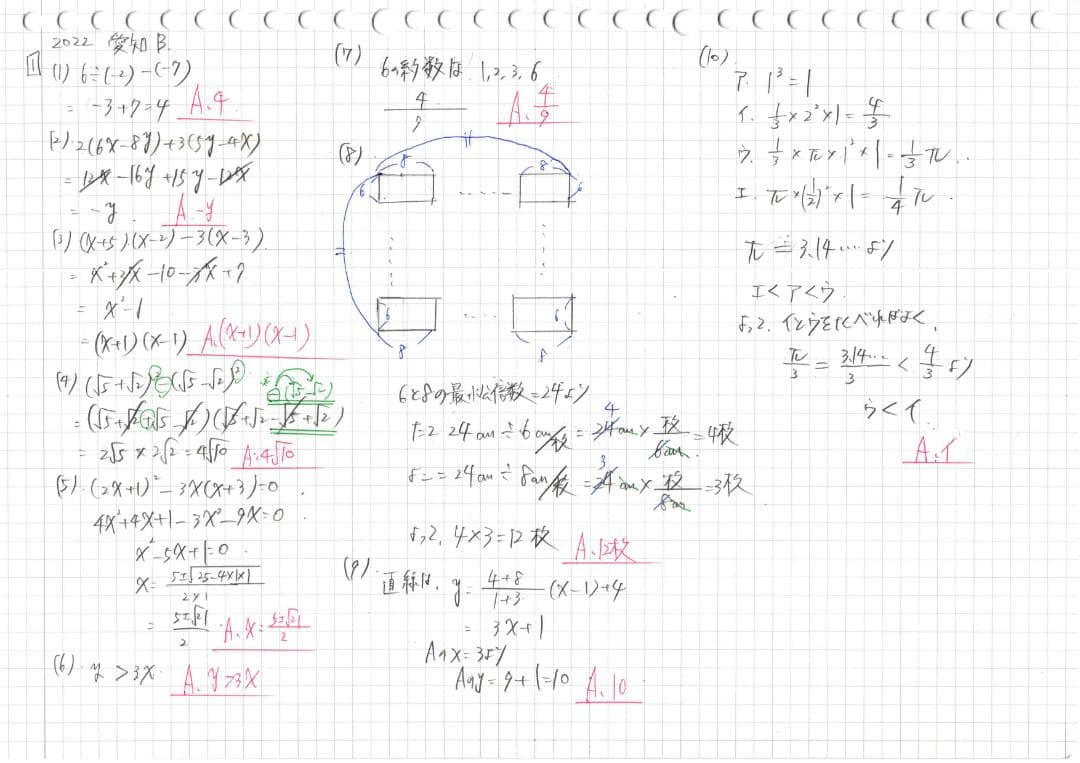 2022 愛知B.
1
(1) 6÷(-2)-(-7)
= -3+7=4 A.4
(2) 2(6x-8y)+3(5y-4x)
= 12x-16y+15y-12x
= -y. A.-y
(3) (x+5)(x-2)-3(x-3)
= x²+3x-10-3x+9
= x²-1
=(x+1)(x-1) A.(x+1)(x-1)
(4) (√5+√2)²-(√5-√2)² -(√5-√2)
=(√5+√2+√5-√2)(√5+√2-√5+√2)
= 2√5×2√2=4√10 A.4√10
(5). (2x+1)²-3x(x+3)=0.
4x²+4x+1-3x²-9x=0.
x²-5x+1=0.
x= 5±√25-4×1×1 / 2×1
= 5±√21 / 2 . A. x= 5±√21 / 2
(6). y>3x. A. y>3x
(7) 6の約数は. 1,2,3,6
4/9 A. 4/9
(8)
8 8
6 6
6 6
8 8
6と8の最小公倍数=24より
たて 24cm÷6cm/枚=24cm×枚/6cm=4枚
4
よこ=24cm÷8cm/枚=24cm×枚/8cm=3枚
3
よって, 4×3=12枚 A.12枚
(9).
直線は, y= 4+8/1+3 (x-1)+4
= 3x+1
Aのx=3より
Aのy=9+1=10 A.10
(10).
ア. 1³=1
イ. 1/3×2²×1=4/3
ウ. 1/3×π×1²×1=1/3π..
エ. π×(1/2)²×1=1/4π.
π≒3.14…より
エ<ア<ウ.
よって, イとウをくらべればよく,
π/3=3.14…/3<4/3より
ウ<イ
A.イ